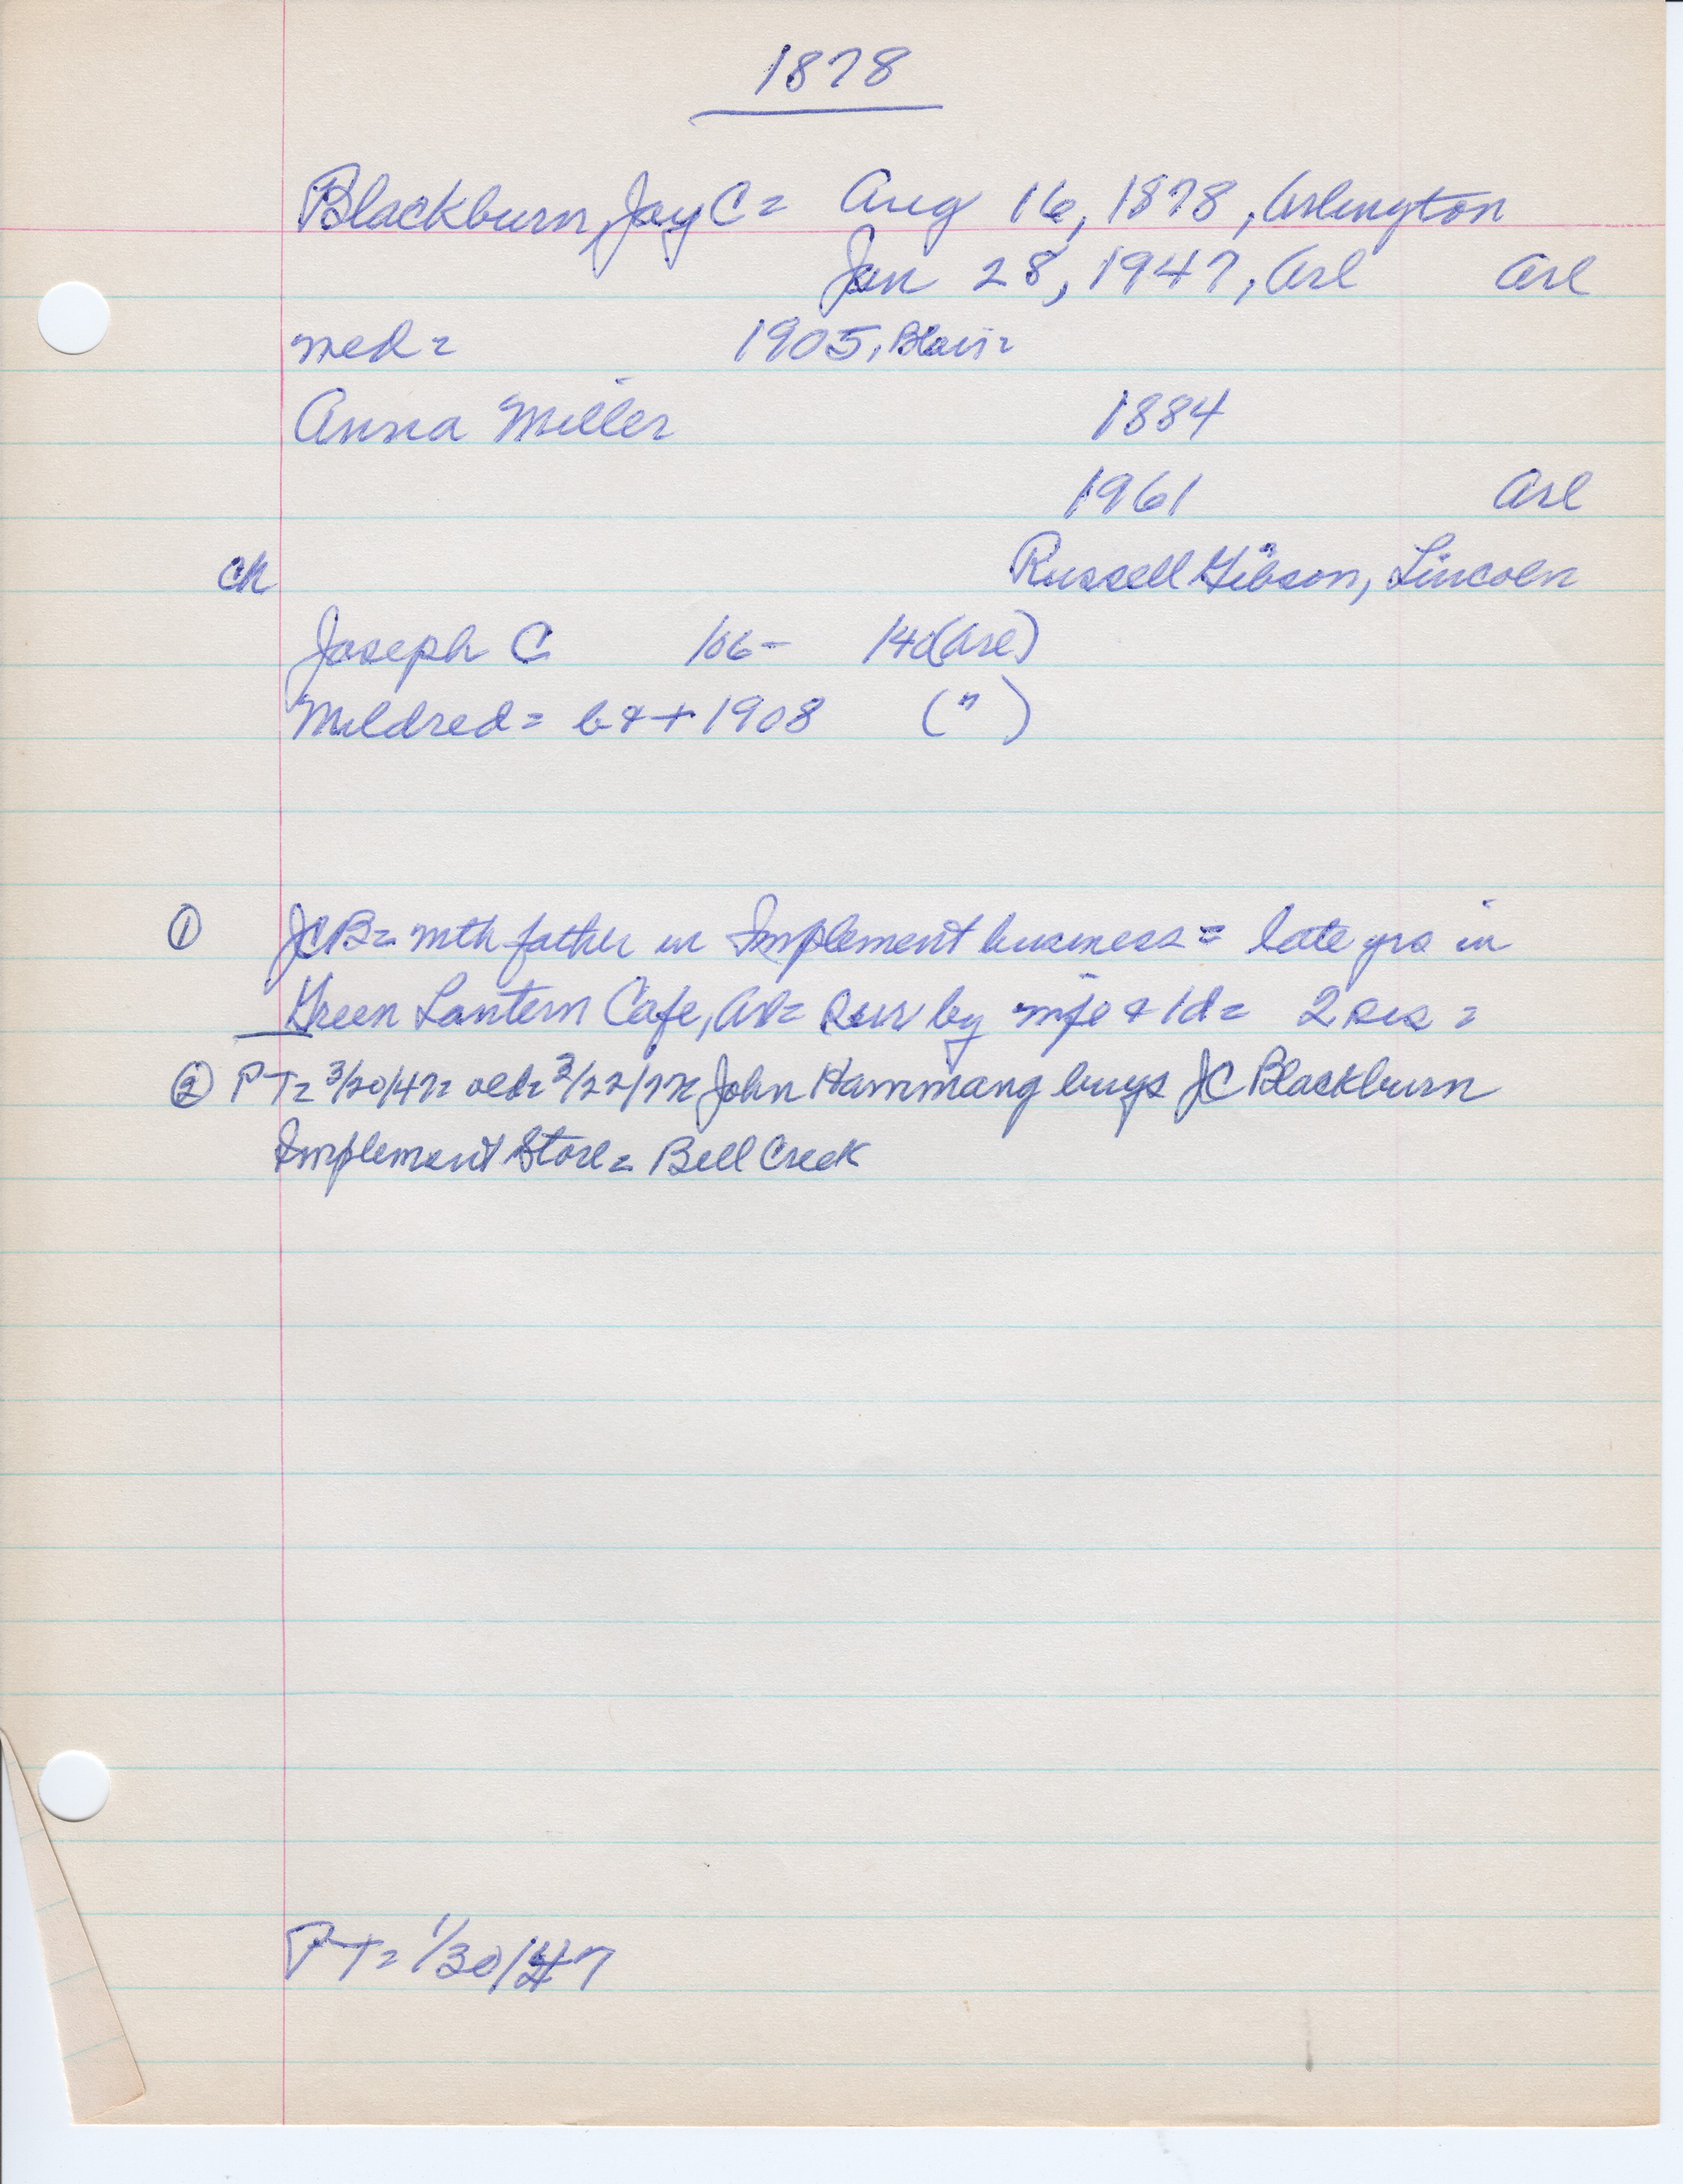 1878
Blackburn, Jay C = Aug 16, 1878, Arlington
Jan 28, 1947, Arl Arl
med = 1905, Blair =
Anna Miller 1884
1961 Arl
ch Russell Gibson, Lincoln
Joseph C /06- /40(Arl)
Mildred = b & + 1908 (")
① JCB = with father in Implement business = late yrs in
Green Lantern Cafe, Arl = Sur by wife & 1d = 2 sis =
② PT = 3/20/47 = 3/22/ John Hammang buys JC Blackburn
Implement Store = Bell Creek
PT = 1/30/47